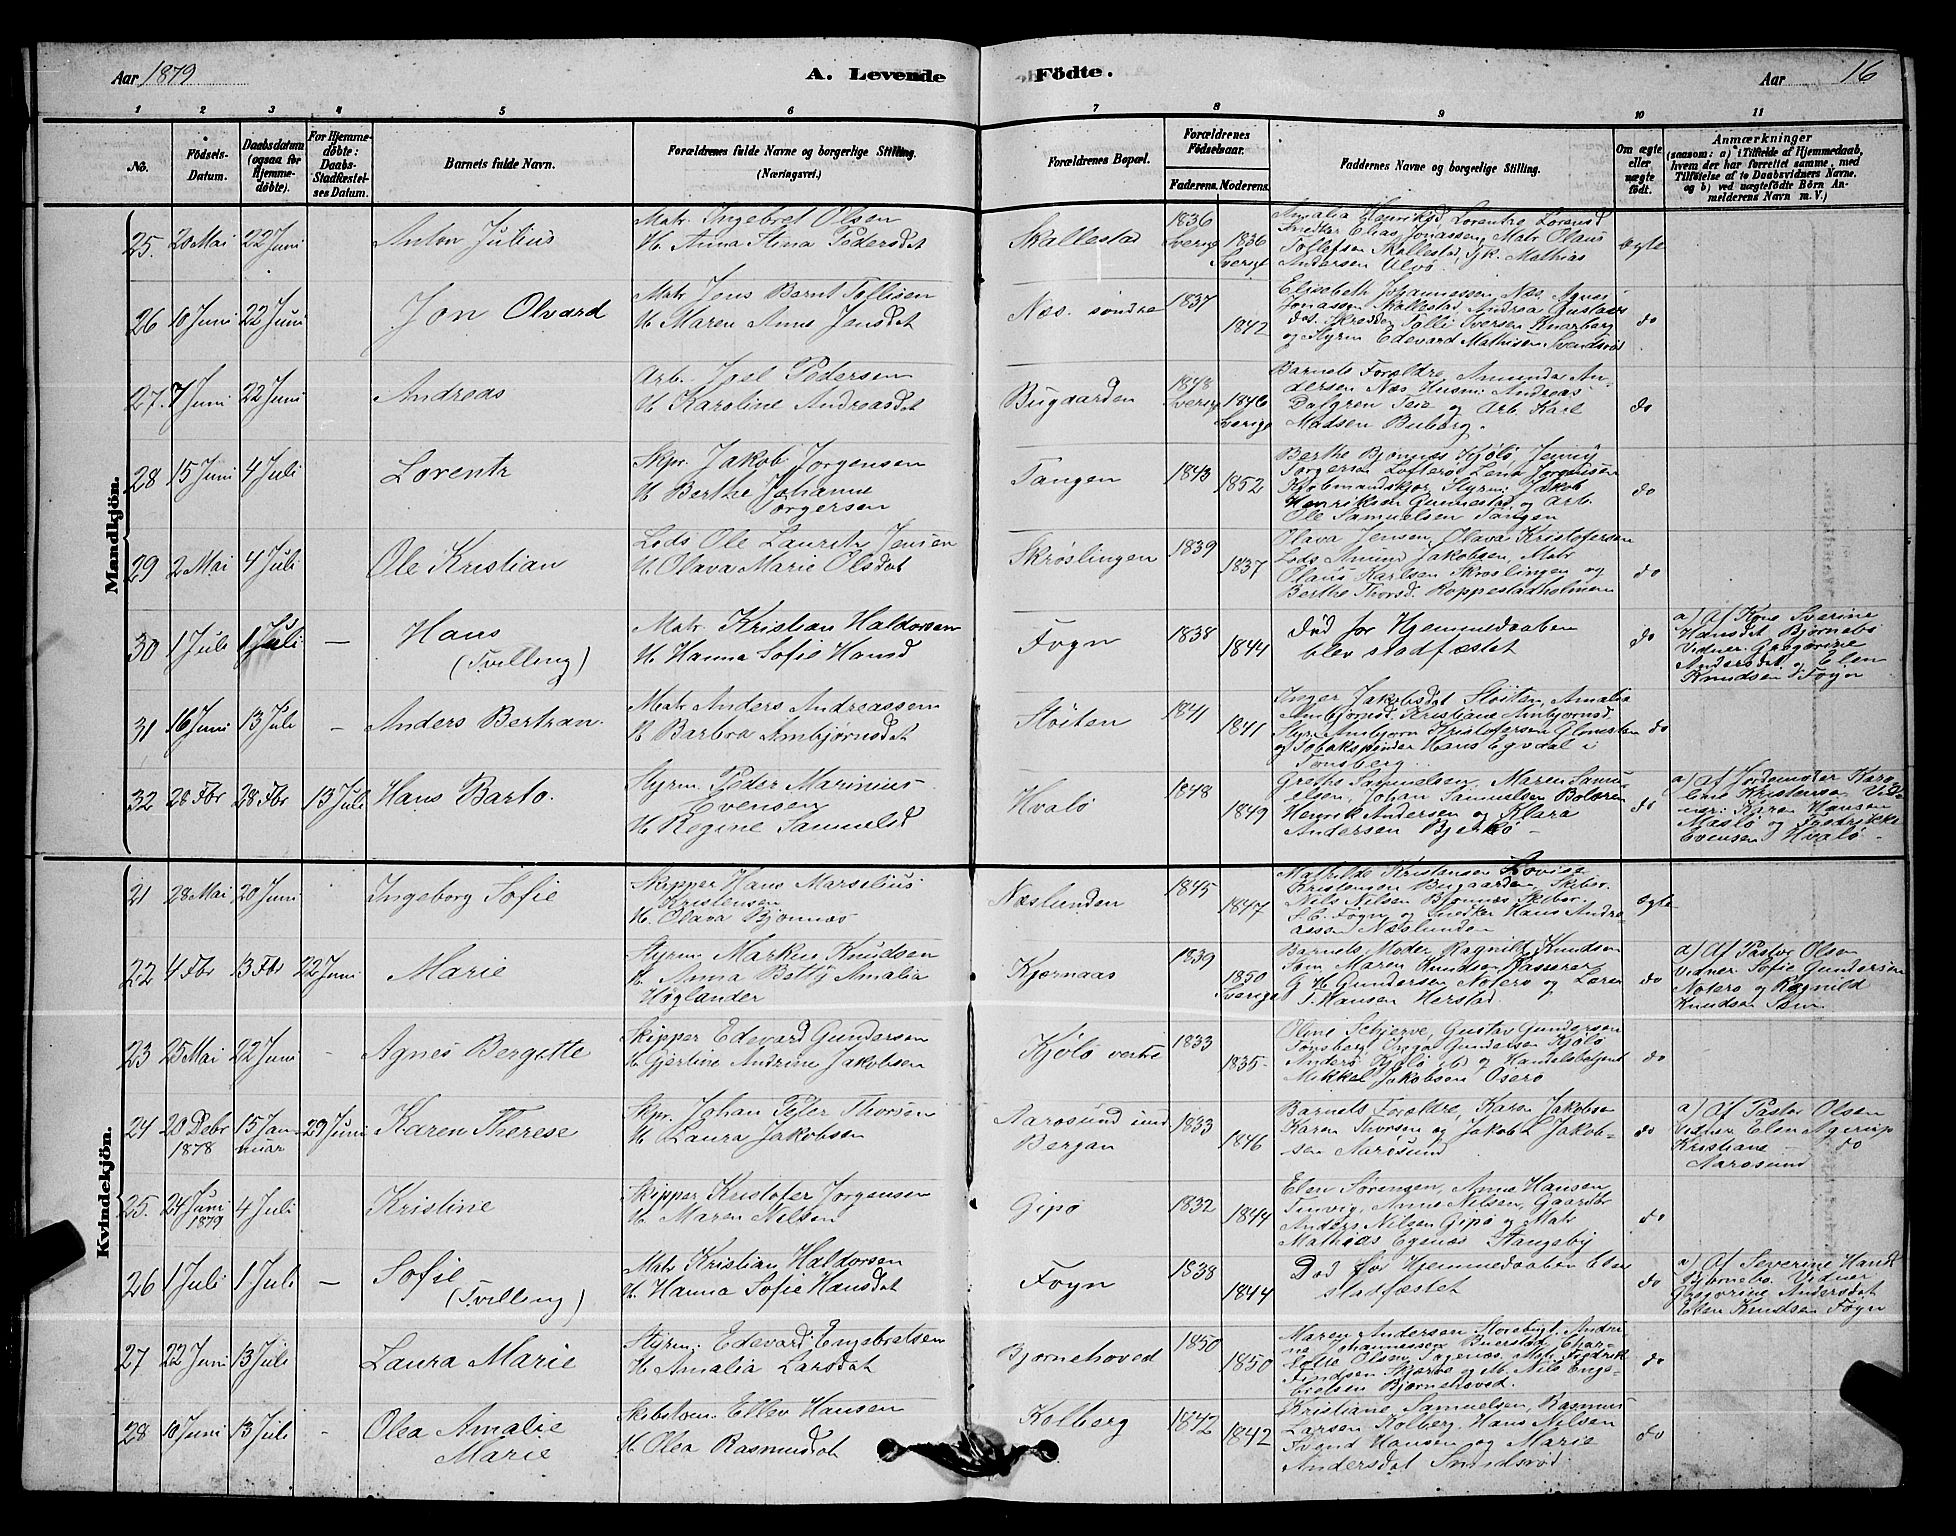 Aar 1879
A. Levende Födte.
Aar 16
1 2 3 4 5 6 7 8 9 10 11
No.
Födsels-Datum.
Daabsdatum (ogsaa for Hjemmedöbte).
For Hjemmedöbte: Daabs-Stadfæstelses Datum.
Barnets fulde Navn.
Forældrenes fulde Navne og borgerlige Stilling.
(Næringsvei.)
Forældrenes Bopæl.
Forældrenes Födselsaar.
Faderens. Moderens.
Faddernes Navne og borgerlige Stilling.
Om ægte eller uægte födt.
Anmærkninger
(saasom: a) i Tilfælde af Hjemmedaab, hvem der har forrettet samme, med Tilföielse af to Daabsvidners Navne, og b) ved uægtefödte Börn Anmelderens Navn m. V.)
Mandkjön.
25. 20 Mai 22 Juni Anton Julius
Matr Ingebret Olsen
H. Anna Stina Pedersdat
Skallestad 1836 Sverige 1836 Sverige
Amalia Henriksd, Lorentze Lorensd
Snedker Elias Jonassen, Matr Olaus
Tollefsen Skallestad, Mathias
Andersen Ulvö
ægte
26 10 Juni 22 Juni Jon Olvard
Matr Jens Bernt Tollisen
H. Maren Anne Jensdat
Næs. söndre 1837 1842
Elisabeth Johannessen Næs, Agnes
Jonassen Skallestad, Andrea Gustavs
Skredder Tolli Iversen Knarberg
og Styrm Edevard Mathisen
do
27. 7 Juni 22 Juni Andreas
Arb. Joel Pedersen
H. Karoline Andreasdat
Bugaarden 1848 Sverige 1846 Sverige
Barnets Forældre, Amunda An-
dersen Næs, Husm: Andreas
Dalgren Teie og Arb Karl
Madsen Buberg.
do
28 15 Juni 4 Juli Lorentz
Skpr. Jakob Jorgensen
H. Berthe Johanne
Torgersen
Tangen 1843 1852
Berthe Bjonnes Kjölö, Jenny
Torgersen Lofterö, Lena Jorgensen
Kjobmandskjær, Styrm: Jakob
Henriksen Gunnestad, og Arb.
Ole Samuelsen Tangen
do
29 2 Mai 4 Juli Ole Kristian
Lods Ole Lauritz Jensen
H. Olava Marie Olsdat
Skröslingen 1839 1837
Olava Jensen, Olava Kristofersen
Lods Amund Jakobsen, Matr
Olaus Karlsen Skröslingen og
Berthe Thorsd. Roppestadholmen
do
30 1 Juli 1 Juli — Hans
(Tvilling)
Matr Kristian Haldorsen
H. Hanna Sofie Hansd
Foyn 1838 1844
Död for Hjemmedaaben
blev stadfæstet
do
a) Af Kone Sverine
Hansdat Bjornebö
Vidner Gregorine
Andersdat og Elen
Knudsen i Foyn
31 16 Juni 13 Juli — Anders Bertran.
Matr Anders Andreassen
H Barbra Ambjornsdat
Slöiten 1841 1841
Inger Jakobsdat Slöiten, Amalia
Ambjornsd. Kristiane Ambjornsd.
Styr. Ambjorn Kristofersen
og Tobakspinder Hans Egvdal i
Tonsberg
do
32 20 Fbr 28 Fbr 13 Juli Hans Barto.
Styrm Peder Marinius
Evensen
H Regine Samuelsd
Hvalö 1848 1849
Grethe Samuelsen, Maren Samu-
elsen, Johan Samuelsen Bolæren
Henrik Andersen og Klara
Andersen Bjerkö
do
a) Af Jordemoder Karo-
line Kristensen Vid-
ner: Karen Hansen
Maslö og Fredrikke
Evensen Hvalö
Kvindekjön.
21 28 Mai 20 Juni Ingeborg Sofie
Skipper Hans Marselius
Kristensen
H. Olava Bjonnæs
Næslunden 1845 1847
Mathilde Kristensen Lovise
Kristensen Bugaarden, Skibsr.
Nils Nilsen Bjonnæs Skibsr
Foyn og Snedker Hans Andre-
assen Næslunden
ægte
22 4 Fbr 13 Fbr 22 Juni Marie
Styrm Markus Knudsen
H. Anna Betty Amalia
Höglander
Kjernaas 1839 1850 Sverige
Barnets Moder, Ragnild Knudsen
Maren Knudsen, Kasserer
G H Gundersen Noterö og Loren
T. Hansen Herstad
do
a) Af Pastor Olsen
Vidner Sofie Gundersen
Noterö og Ragnild
Knudsen
23 25 Mai 22 Juni - Agnes Bergitte
Skipper Edevard Gundersen
H. Gjertine Andrine Jakobsen
Kjölö vestre 1833 1835
Oline Schjerve, Gustav Gundersen
Tönsberg, Gundersen Kjölö
Anders Kjölö og Handelsbetjent
Mikkel Jakobsen Oserö
do
24 20 Debr 1878 15 Januar 29 Juni Karen Therese
Skpr. Johan Peter Thorsen
H Laura Jakobsen
Aarosund Berjan 1833 1846
Barnets Forældre, Karen Jakobsen
Karen Thorsen og Jakob Jakob-
sen Aarosund
do
a) Af Pastor Olsen
Vidner Elen Agerup
Kristiane do
Aarosund
25. 24 Juni 1879 4 Juli Kristine
Skipper Kristofer Jorgensen
H. Maren Nilsen
Gipö 1832 1844
Elen Sörensen, Anne Hansen
Tenvig, Anne Nilsen, Gaardbr
Anders Nilsen Gipö og Matr
Mathias Egenæs Stangeby
do
26 1 Juli 1 Juli — Sofie
(Tvilling)
Matr Kristian Haldorsen
H. Hanna Sofie Hansdat
Foyn 1838 1844
Död for Hjemmedaaben blev
stadfæstet
do
a) Af Severine Hansd
Bjornebo. Vidner
Gregorine Andersdat
Elen Knudsen Foyn
27 22 Juni 13 Juli Laura Marie
Styrm. Edevard Engebretsen
H. Amalia Larsdat
Bjornehoved 1850 1850
Maren Andersen, Andri-
ne Johannessen Buerstad, Char-
lotte Olsen, Matr Fredrik
Findsen og M. Nils Enge-
bretsen Bjornehoved.
do
28 10 Juni 13 Juli - Olea Amalie
Marie
Skibstom. Ellev Hansen
H. Olea Rasmusdat
Kolberg 1842 1842
Kristiane Samuelsen, Rasmus
Larsen Kolberg, Hans Nilsen
Svend Hansen og Marie
Andersdat
do